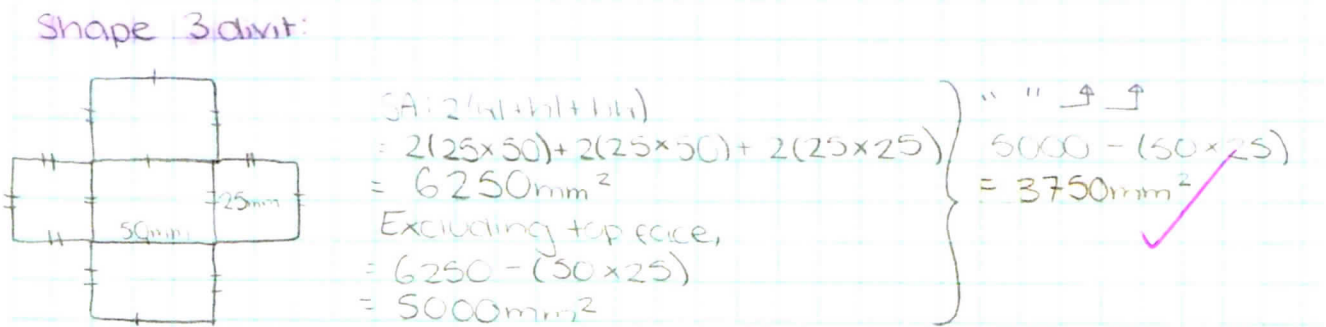 Shape 3 divit:
25mm
50mm
SA: 2(wl+hl+hw)
= 2(25×50)+2(25×50)+ 2(25×25)
= 6250mm²
Excluding top face,
= 6250 - (50×25)
= 5000mm²
" "
5000 - (50×25)
= 3750mm²